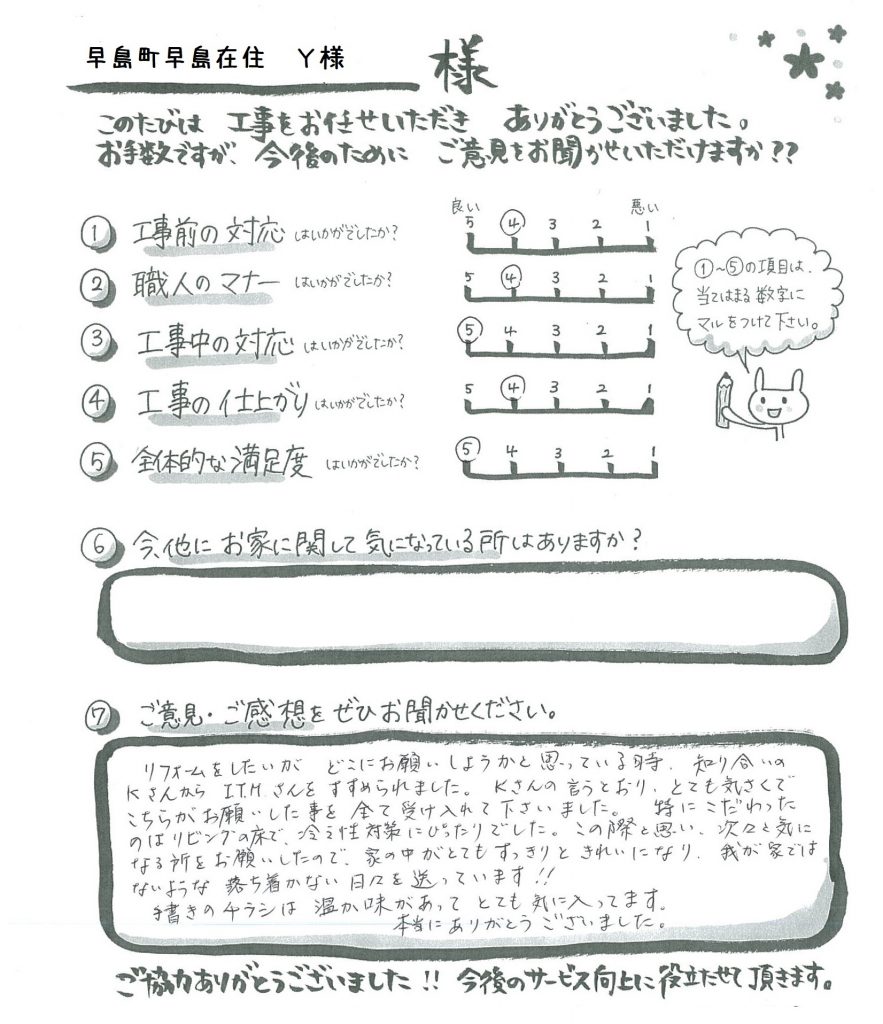 早島町早島在住　Y様
様
このたびは 工事をお任せいただき ありがとうございました。
お手数ですが、今後のために ご意見をお聞かせいただけますか??
良い 悪い
① 工事前の対応 はいかがでしたか? 5 ④ 3 2 1
② 職人のマナー はいかがでしたか? 5 ④ 3 2 1
③ 工事中の対応 はいかがでしたか? ⑤ 4 3 2 1
④ 工事の仕上がり はいかがでしたか? 5 ④ 3 2 1
⑤ 全体的な満足度 はいかがでしたか? ⑤ 4 3 2 1
①~⑤の項目は、
当てはまる数字に
マルをつけて下さい。
⑥ 今、他に お家に関して気になっている所はありますか?
⑦ ご意見・ご感想をぜひお聞かせください。
リフォームをしたいが どこにお願いしようかと思っている時、知り合いの
Kさんから ITMさんをすすめられました。Kさんの言うとおり、とても気さくで
こちらがお願いした事を全て受け入れて下さいました。特にこだわった
のはリビングの床で、冷え性対策にぴったりでした。この際と思い、次々と気に
なる所をお願いしたので、家の中がとてもすっきりときれいになり、我が家では
ないような 落ち着かない日々を送っています!!
手書きのチラシは 温か味があって とても気に入ってます。
本当にありがとうございました。
ご協力ありがとうございました!! 今後のサービス向上に役立たせて頂きます。